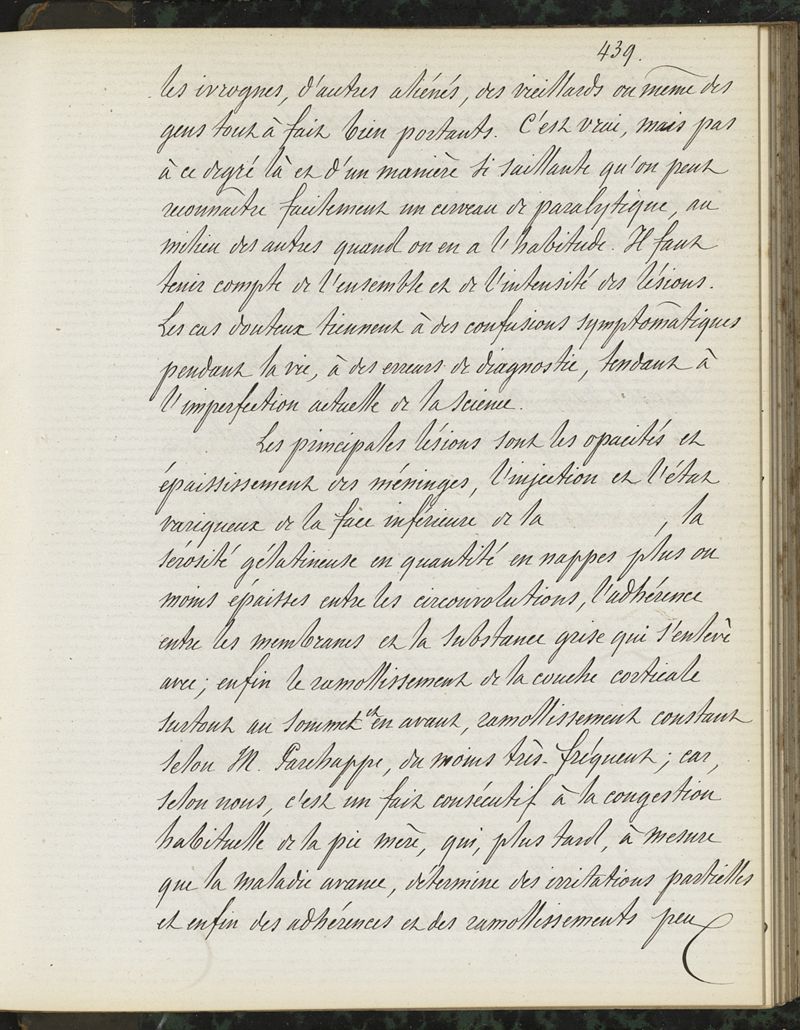 439.
les ivrognes, d'autres aliénés, des vieillards ou même des
gens tout à fait bien portants. C'est vrai, mais pas
à ce degré là et d'un manière si saillante qu'on peut
reconnaître facilement un cerveau de paralytique, au
milieu des autres quand on en a l'habitude. Il faut
tenir compte de l'ensemble et de l'intensité des lésions.
Les cas douteux tiennent à des confusions symptômatiques
pendant la vie, à des erreurs de diagnostic, tendant à
l'imperfection actuelle de la science.
Les principales lésions sont les opacités et
épaississement des méninges, l'injection et l'état
variqueux de la face inférieure de la , la
sérosité gélatineuse en quantité en nappes plus ou
moins épaisses entre les circonvolutions, l'adhérence
entre les membranes et la substance grise qui s'enlève
avec; enfin le ramollissement de la couche corticale
surtout au sommet et en avant, ramollissement constant
selon M. Parchappe, du moins très-fréquent; car,
selon nous, c'est un fait consécutif à la congestion
habituelle de la pie mère, qui, plus tard, à mesure
que la maladie avance, détermine des irritations partielles
et enfin des adhérences et des ramollissements peu